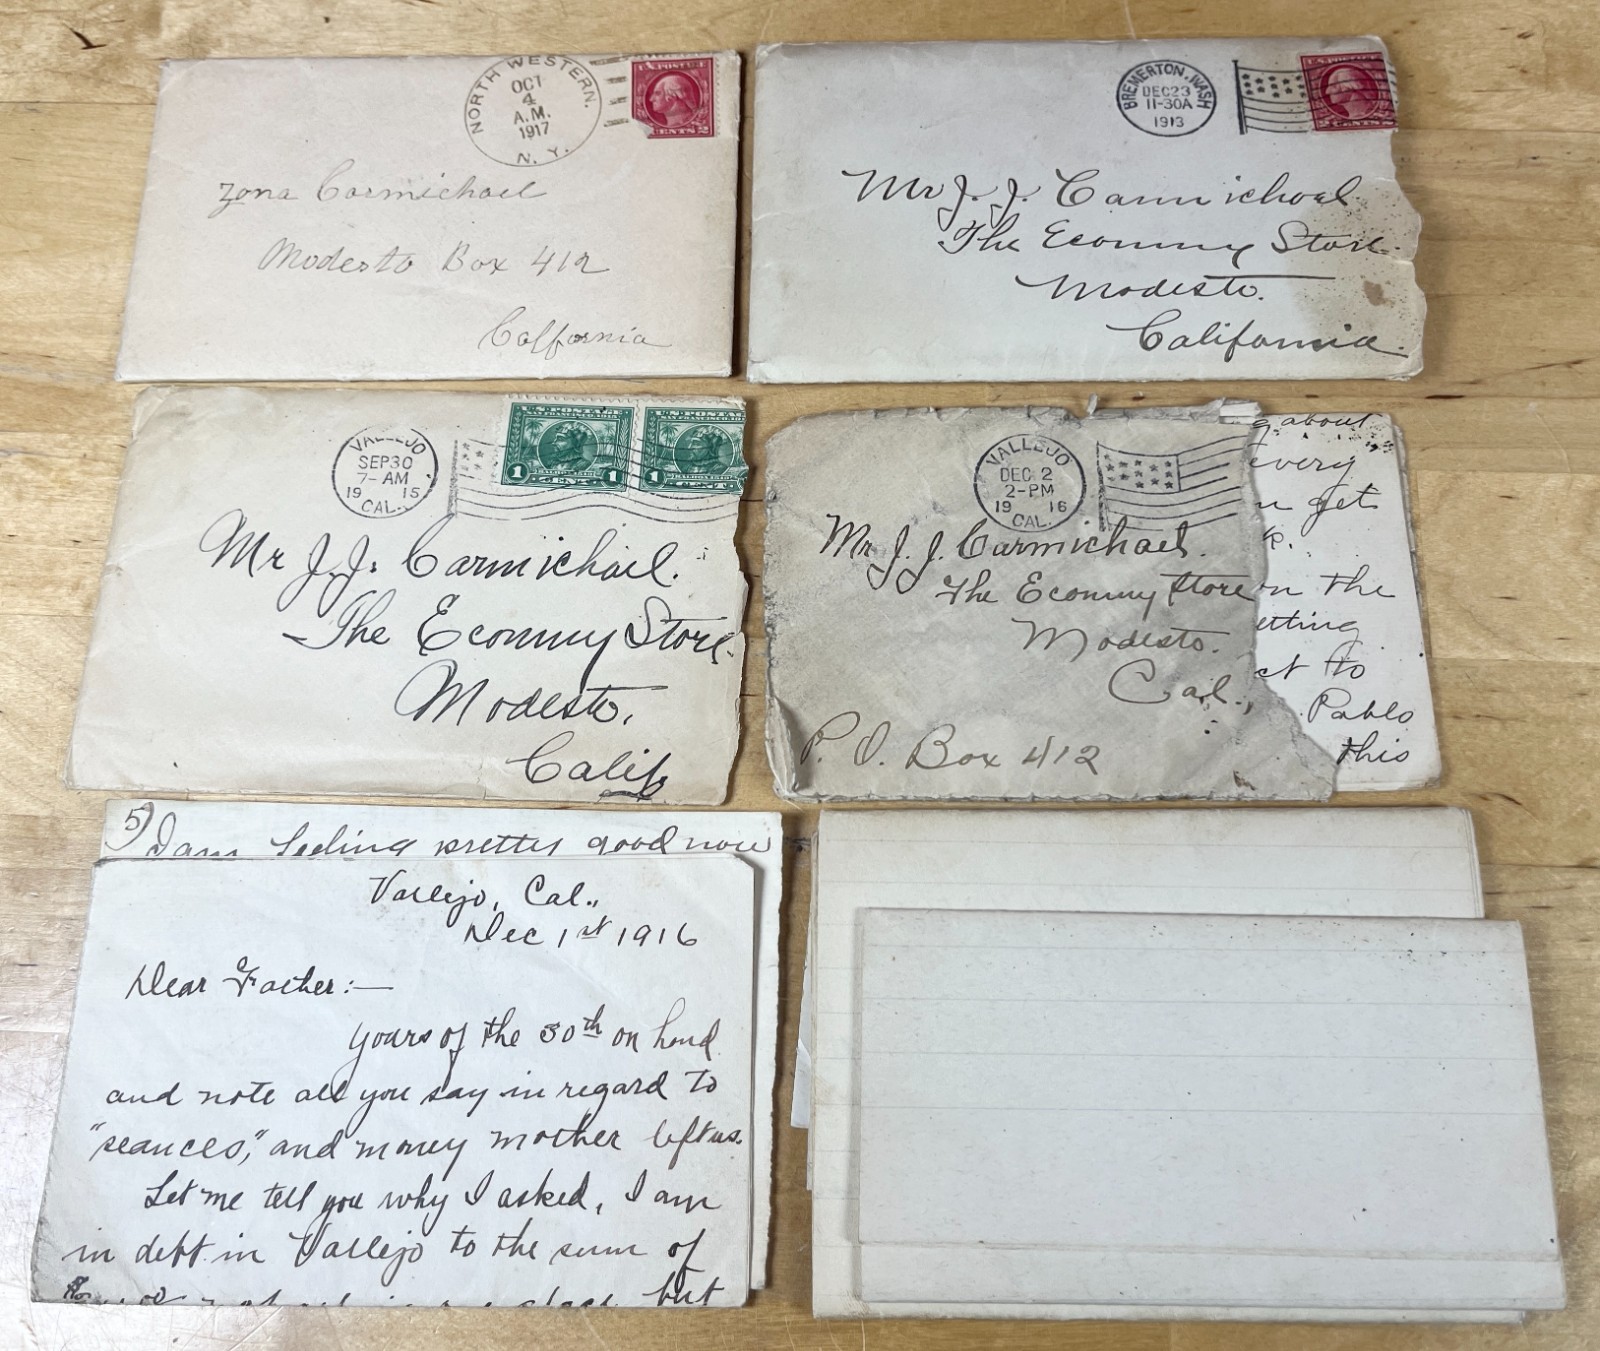 NORTH WESTERN.
OCT
4
A.M.
1917
N. Y.
U.S. POSTAGE
2 CENTS 2
Zona Carmichael
Modesto Box 412
Calfornia
BREMERTON, WASH
DEC 23
11-30A
1913
U.S. POSTAGE
2 CENTS 2
Mr J. J. Carmichael
The Economy Store.
Modesto.
California.
VALLEJO
SEP 30
7-AM
19 15
CAL.
U.S. POSTAGE
SAN FRANCISCO 1915
1 CENT 1
U.S. POSTAG
SAN FRANCISCO 1915
1 CENT
Mr J. J. Carmichael.
The Economy Store.
Modesto.
Calif
VALLEJO
DEC 2
2-PM
19 16
CAL.
Mr J. J. Carmichael.
The Economy Store
Modesto.
Cal.,
P. O. Box 412
about
every
get
k.
on the
etting
ct to
Pablo
this
5) I am feeling pretty good now
Vallejo, Cal.,
Dec 1st 1916
Dear Father:—
Yours of the 30th on hand
and note all you say in regard to
"seances," and money mother left us.
Let me tell you why I asked, I am
in debt in Vallejo to the sum of
but